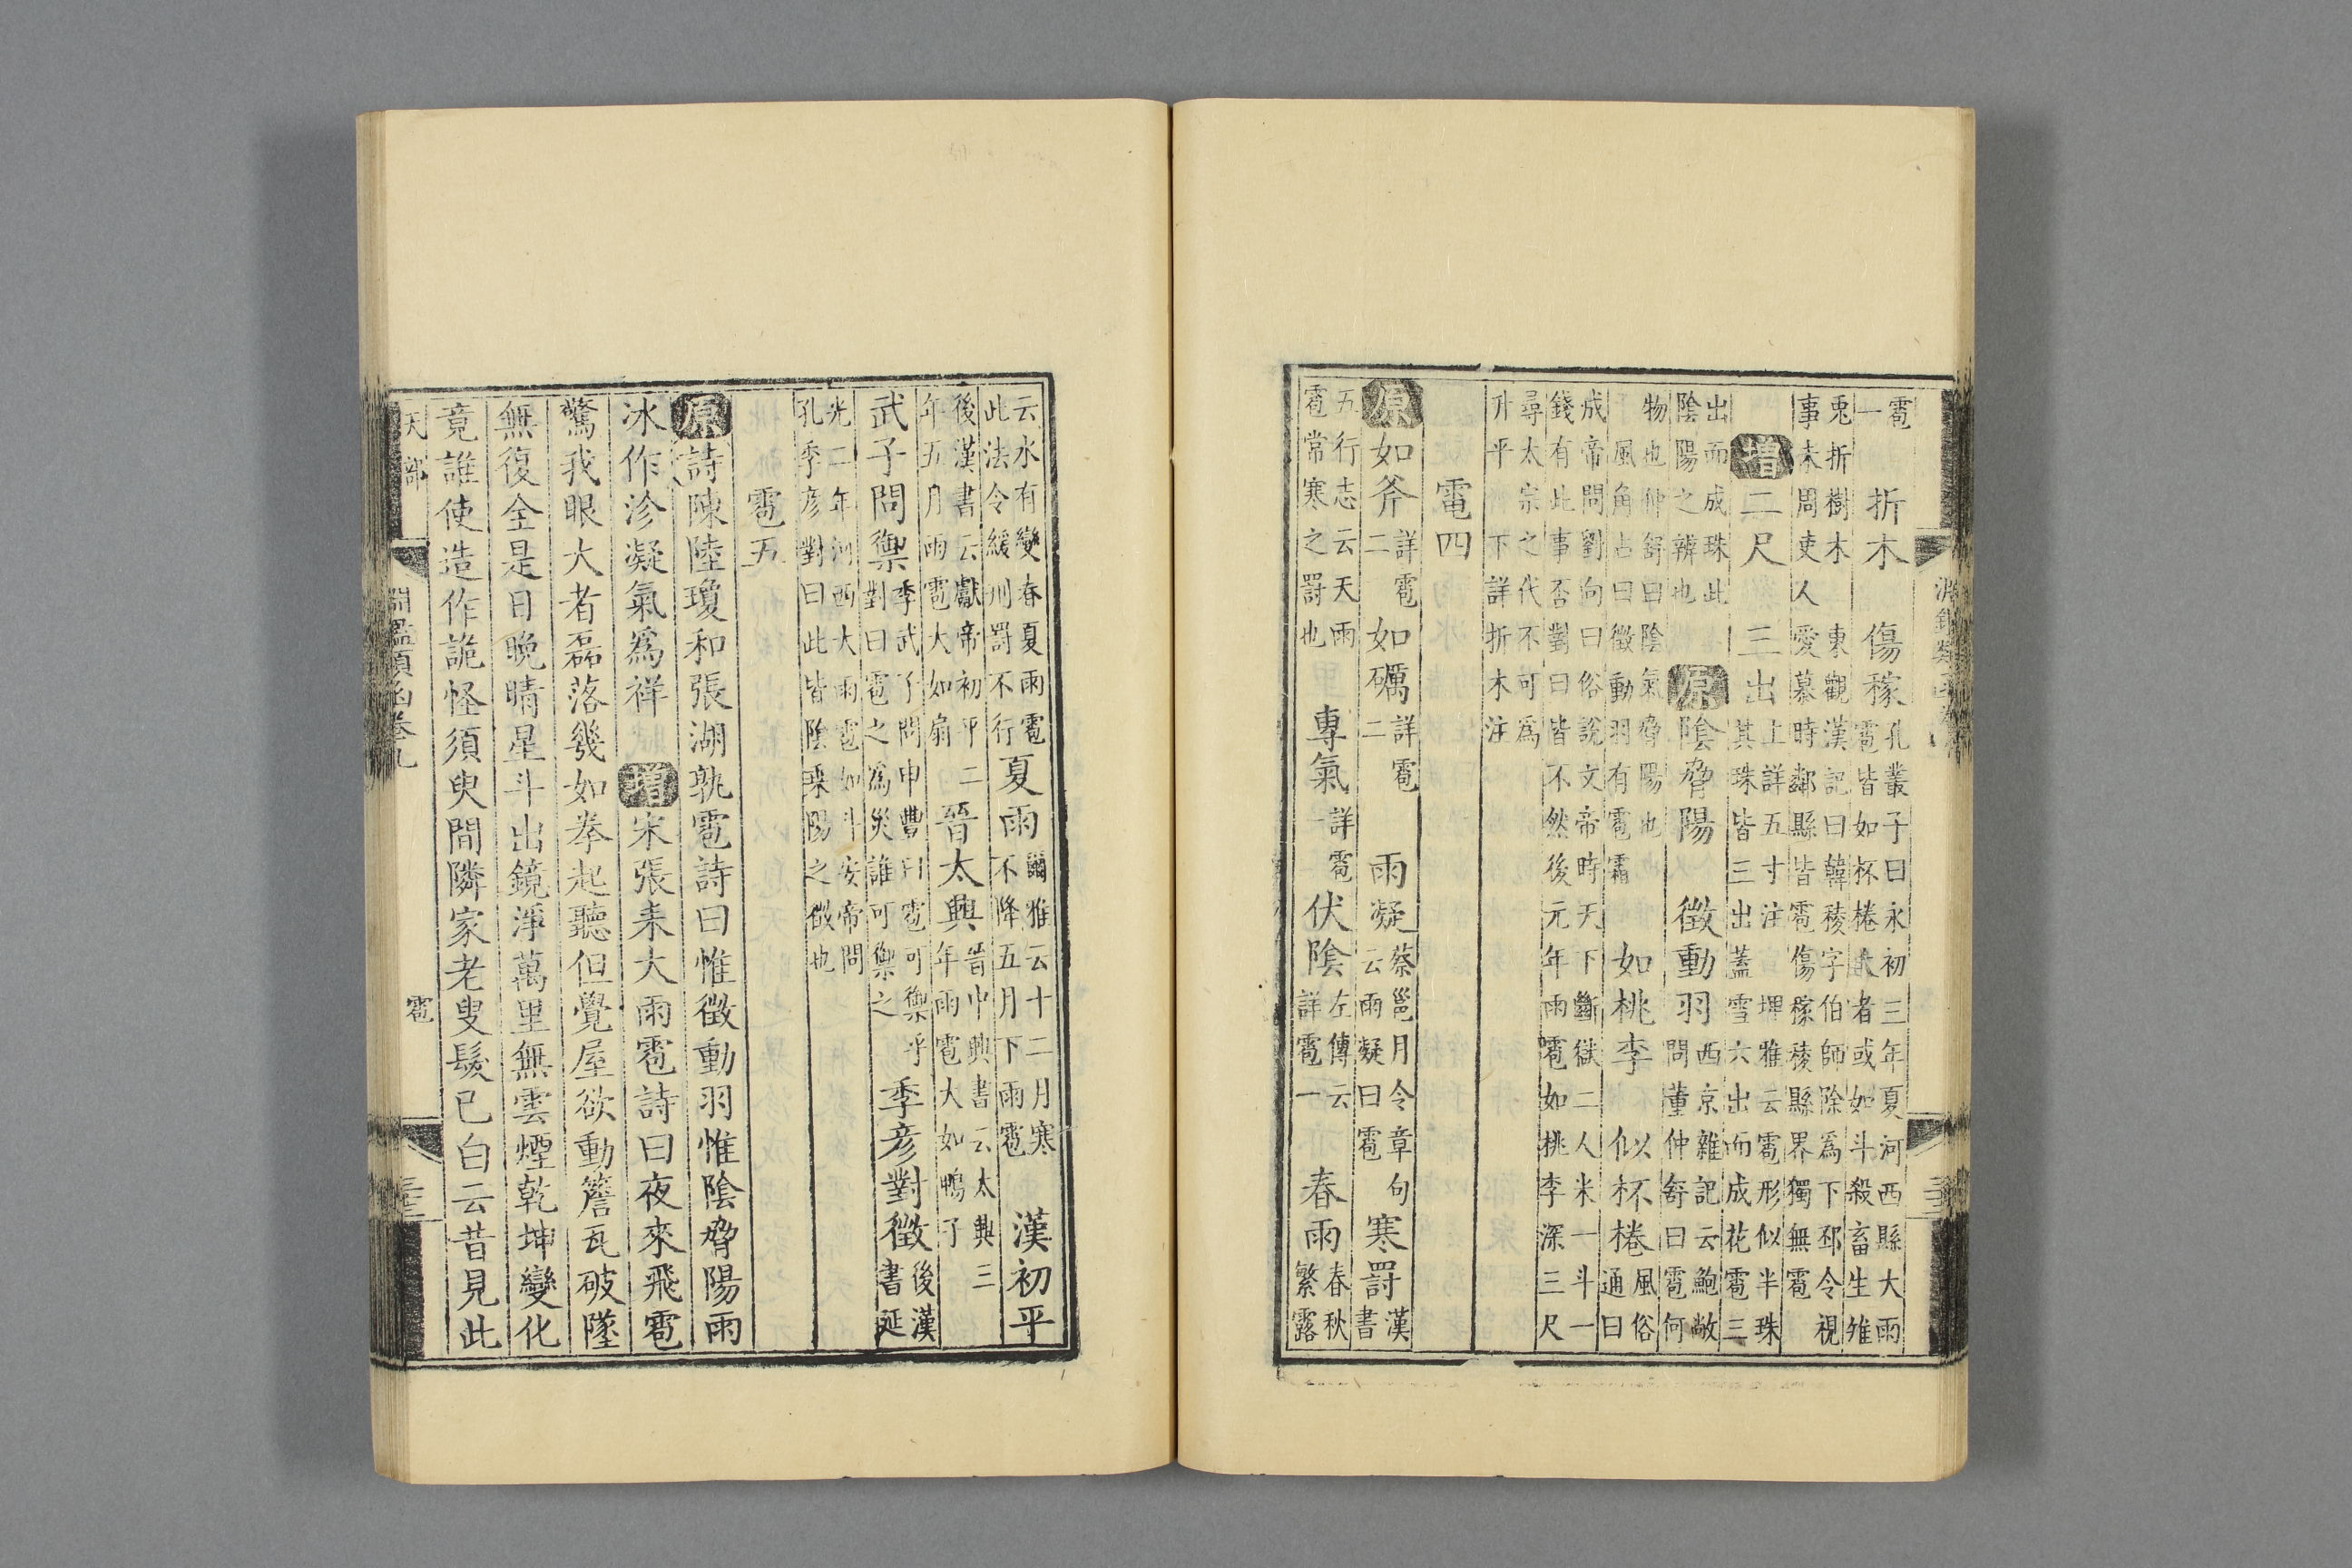 雹一　折木　傷稼 孔叢子曰永初三年夏河西縣大雨雹皆如杯棬大者或如斗殺畜生雉
兎折樹木　東觀漢記曰韓稜字伯師除爲下邳令視事未周吏人愛慕時鄰縣皆雹傷稼稜縣界獨無雹
增二尺　三出 上詳五寸注　埤雅云雹形似半珠其珠皆三出蓋雪六出而成花雹三
出而成珠此陰陽之辨也 原陰脅陽　徵動羽 西京雜記云鮑敞問董仲舒曰雹何
物也仲舒曰陰氣脅陽也　風角占曰徵動羽有雹霜　如桃李　似杯棬 風俗通曰
成帝問劉向曰俗說文帝時天下斷獄二人米一斗一錢有此事否對曰皆不然後元年雨雹如桃李深三尺
尋太宗之代不可爲升平　下詳折木注
雹四
原如斧 詳雹二 如礪 詳雹二　雨凝 蔡邕月令章句云雨凝曰雹 寒罰 漢書
五行志云天雨雹常寒之罰也　專氣 詳雹一 伏陰 左傳云詳雹一　春雨 春秋繁露
云水有變春夏雨雹此法令緩刑罰不行 夏雨 爾雅云十二月寒不降五月下雨雹　漢初平
後漢書云獻帝初平二年五月雨雹大如扇　晉太興 晉中興書云太興三年雨雹大如鴨子
武子問禦 季武子問申豐曰雹可禦乎對曰雹之爲災誰可禦之　季彥對徵 後漢書延
光二年河西大雨雹如斗安帝問孔季彥對曰此皆陰乘陽之徵也
雹五
原詩陳陸瓊和張湖孰雹詩曰惟徵動羽惟陰脅陽雨
冰作沴凝氣爲祥　增宋張耒大雨雹詩曰夜來飛雹
驚我眼大者磊落幾如拳起聽但覺屋欲動簷瓦破墜
無復全是日晚晴星斗出鏡淨萬里無雲煙乾坤變化
竟誰使造作詭怪須臾間隣家老叟髮已白云昔見此
天部　雹